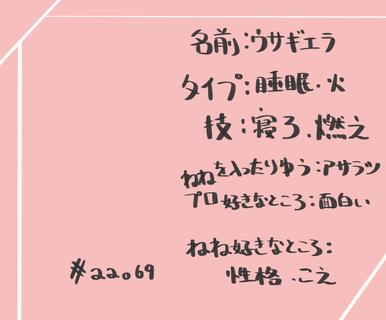 名前:ウサギエラ
タイプ:睡眠.火
技:寝ろ.燃え
ねねを入ったりゆう:アサラツ
プロ好きなところ:面白い
ねね好きなところ:
性格.こえ
#22069